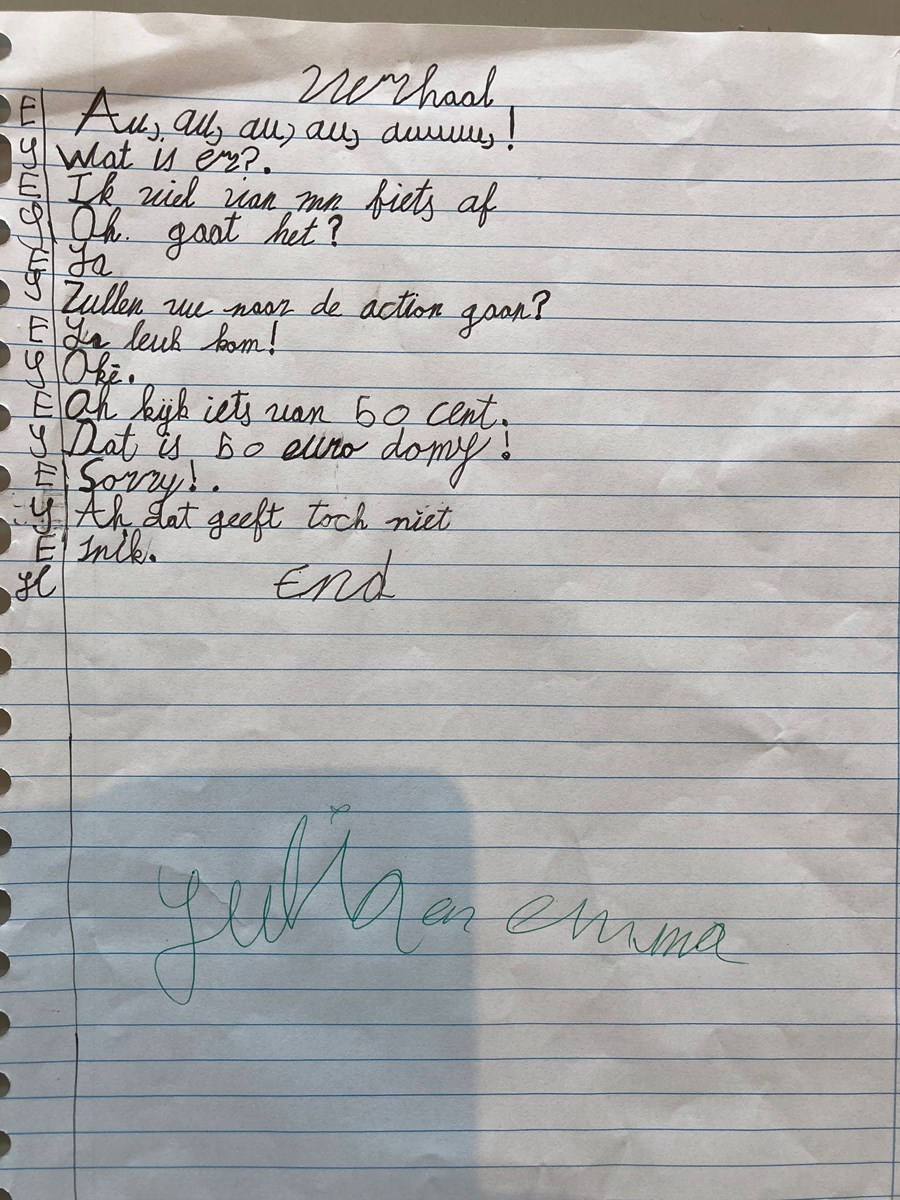 Verhaal
E Au, au, au, au, auuuuu,!
J Wat is er?.
E Ik viel van mn fiets af
J Oh. gaat het?
E Ja
J Zullen we naar de action gaan?
E Ja leuk kom!
J Oké.
E Oh kijk iets van 50 cent.
J Dat is 50 euro domy!
E Sorry!.
J Ah dat geeft toch niet
E Snik.
End
Julia en emma